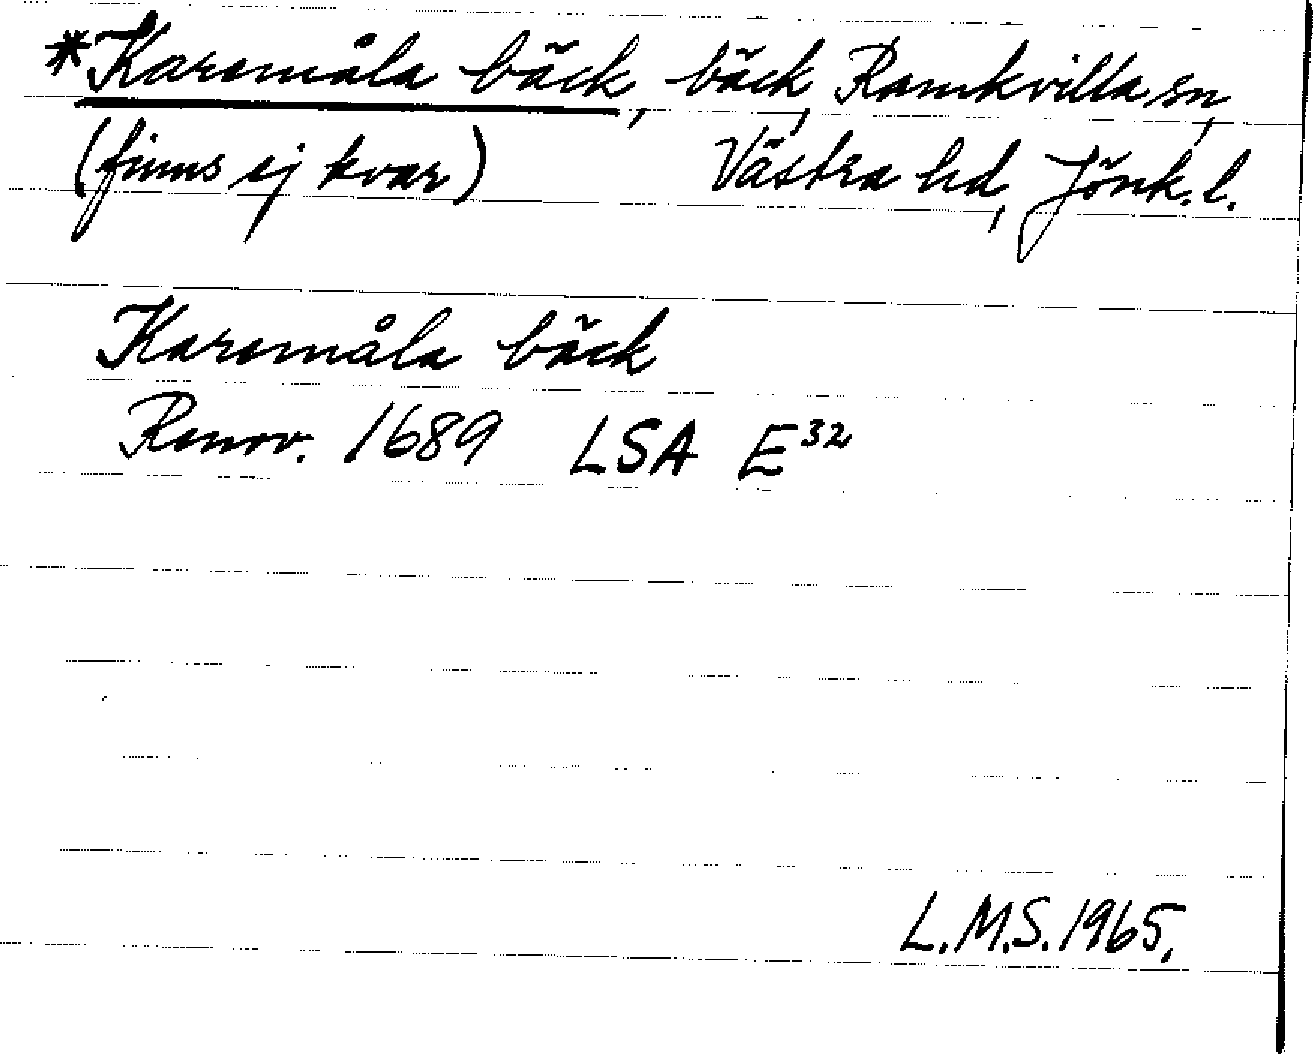 *Karsmåla bäck, bäck, Ramkvilla sn,
(finns ej kvar) Västra hd, Jönk. l.
Karsmåla bäck
Renov. 1689 LSA E32
L.M.S. 1965.